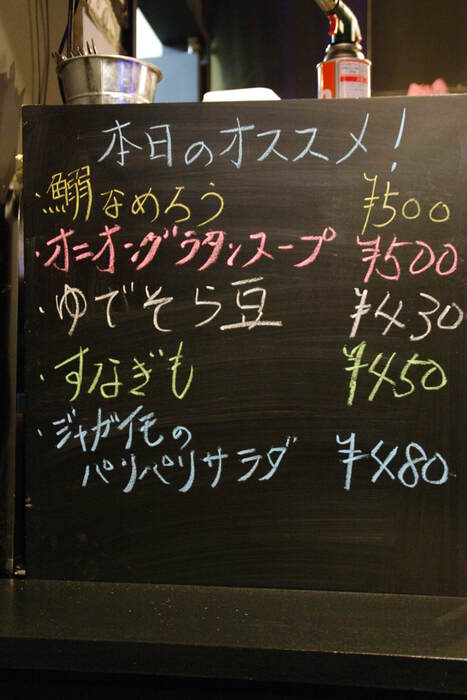 本日のオススメ！
・鰯なめろう ¥500
・オニオングラタンスープ ¥500
・ゆでそら豆 ¥430
・すなぎも ¥450
・ジャガイモの
パリパリサラダ ¥480